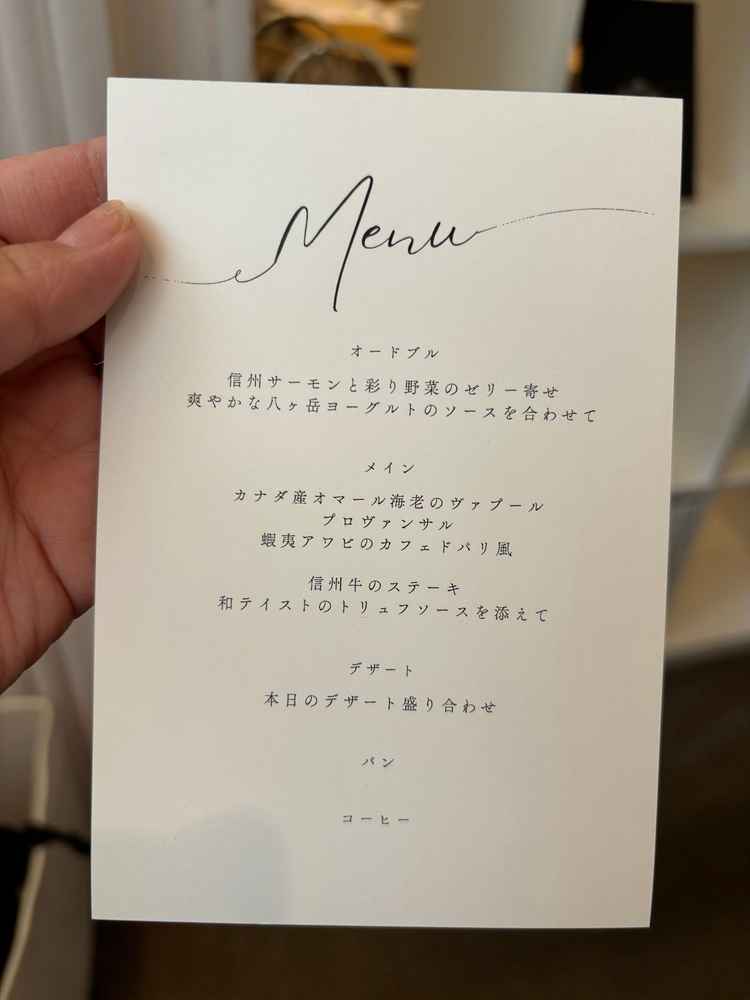 Menu
オードブル
信州サーモンと彩り野菜のゼリー寄せ
爽やかな八ヶ岳ヨーグルトのソースを合わせて
メイン
カナダ産オマール海老のヴァプール
プロヴァンサル
蝦夷アワビのカフェドパリ風
信州牛のステーキ
和テイストのトリュフソースを添えて
デザート
本日のデザート盛り合わせ
パン
コーヒー